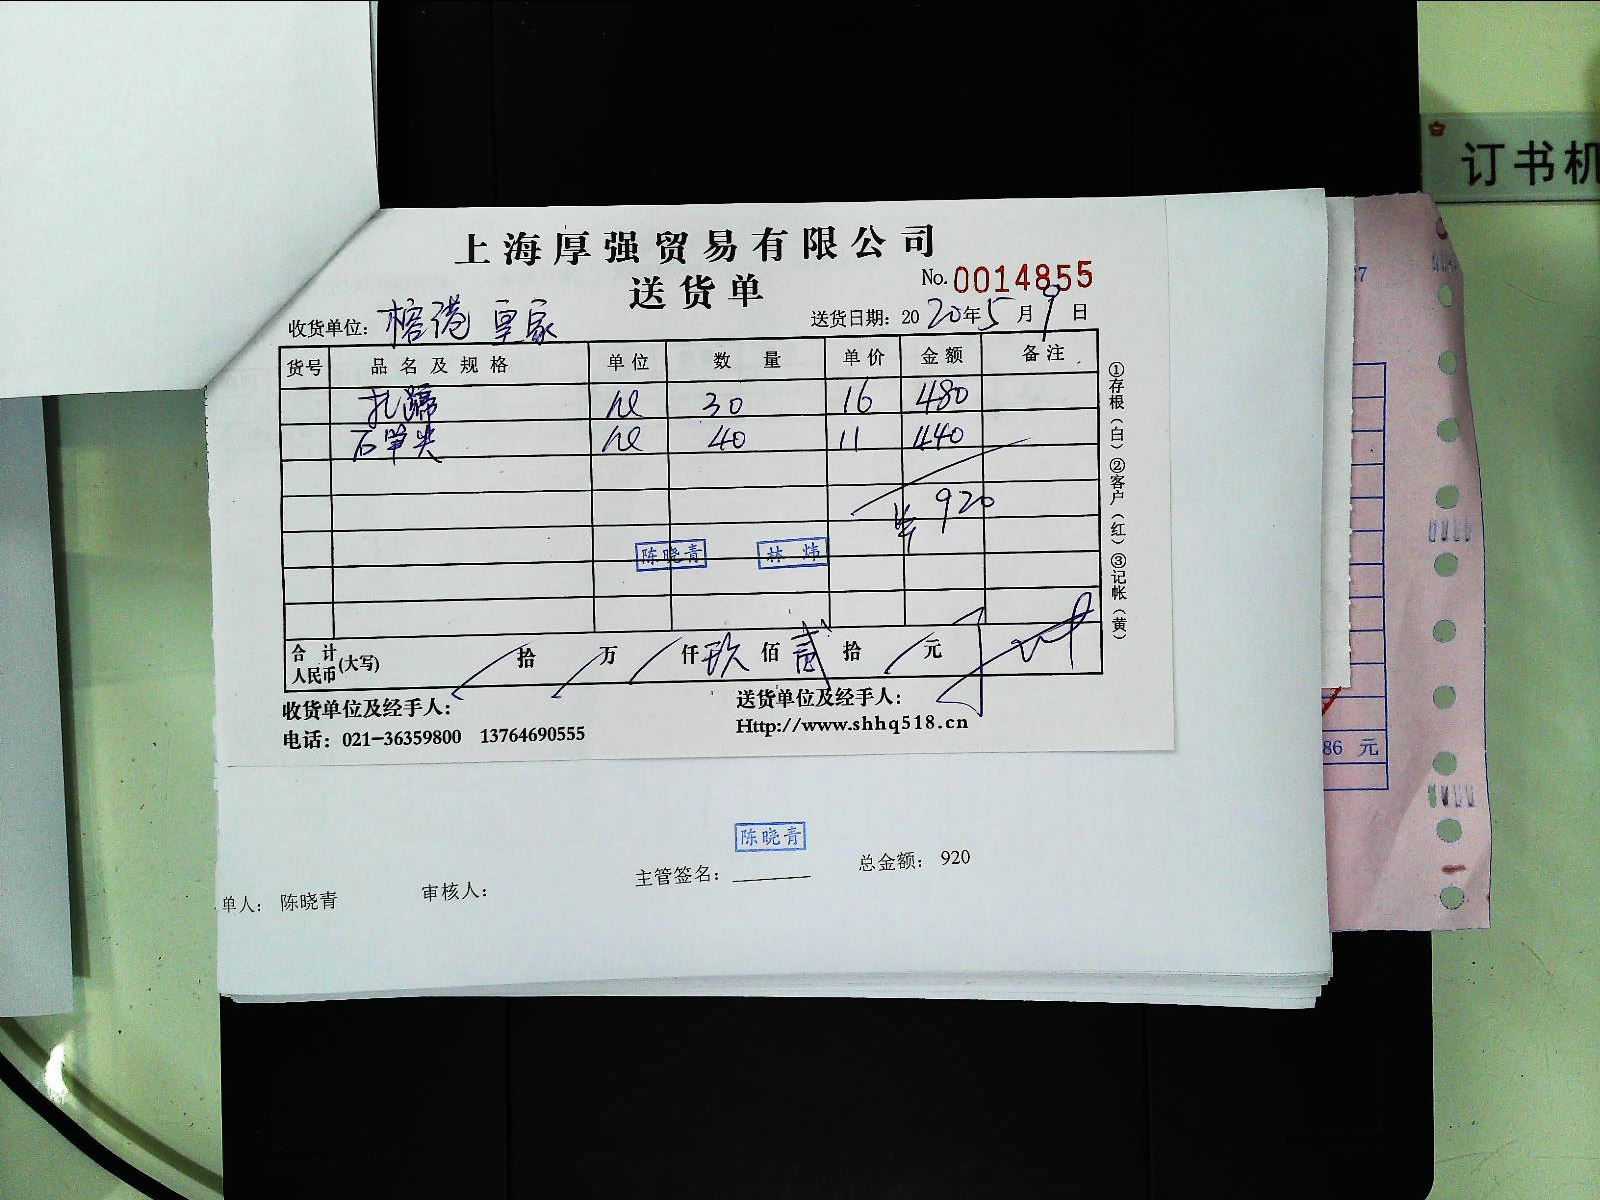 订书机
上海厚强贸易有限公司
送货单
No. 0014855
收货单位：榕港 皇家
送货日期：2020年5月9日
货号 品名及规格 单位 数量 单价 金额 备注
扎蹄 30 16 480
石笋尖 40 11 440
920
陈晓青 林炜
合计人民币(大写) 拾 万 仟 玖 佰 贰 拾 元
收货单位及经手人：
送货单位及经手人：
电话：021-36359800 13764690555
Http://www.shhq518.cn
①存根（白）②客户（红）③记帐（黄）
陈晓青
单人：陈晓青
审核人：
主管签名：
总金额：920
86 元